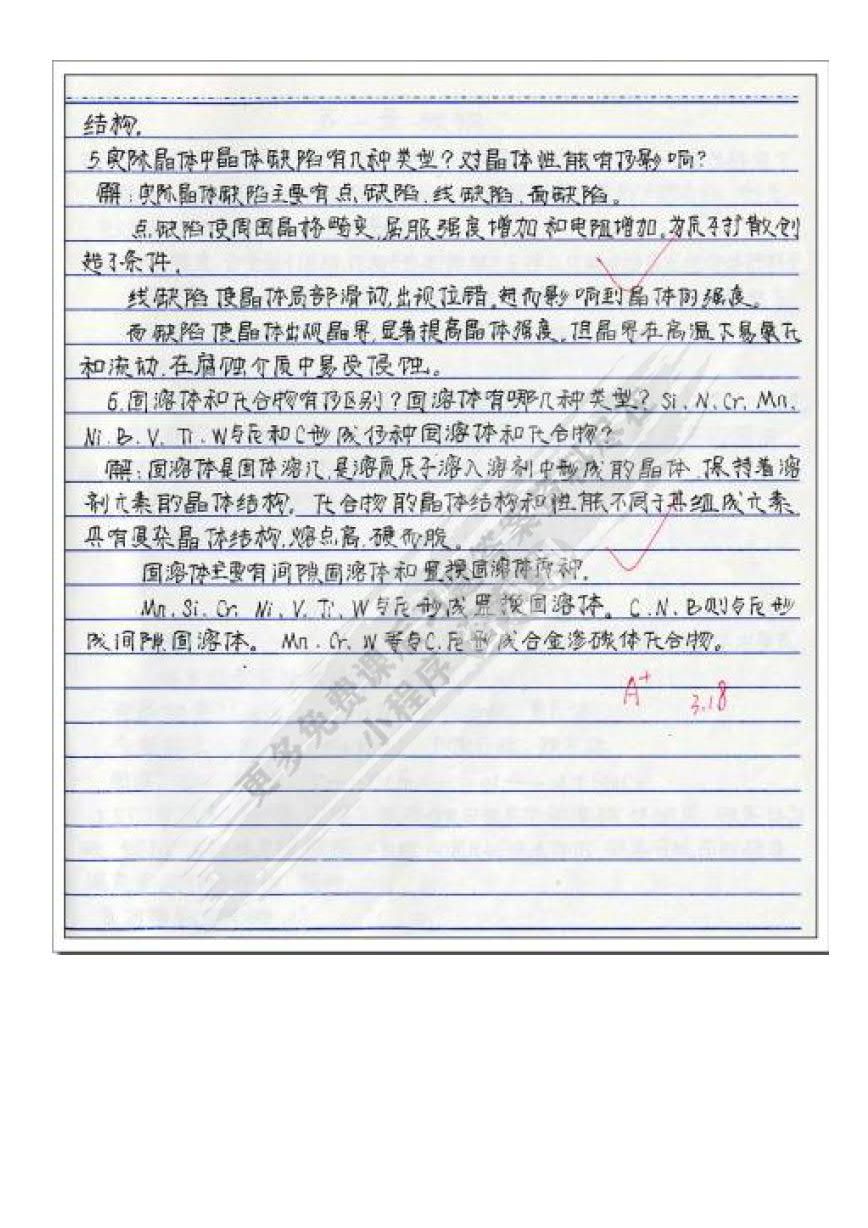 结构.
5.实际晶体中晶体缺陷有几种类型?对晶体性能有何影响?
解:实际晶体缺陷主要有点缺陷、线缺陷、面缺陷。
点缺陷使周围晶格畸变,屈服强度增加和电阻增加,为原子扩散创
造了条件.
线缺陷使晶体局部滑动,出现位错,进而影响到晶体的强度。
面缺陷使晶体出现晶界,显著提高晶体强度,但晶界在高温下易氧化
和流动,在腐蚀介质中易受侵蚀。
6.固溶体和化合物有何区别?固溶体有哪几种类型?Si、N、Cr、Mn、
Ni、B、V、Ti、W与Fe和C形成何种固溶体和化合物?
解:固溶体是固体溶液,是溶质原子溶入溶剂中形成的晶体,保持着溶
剂元素的晶体结构。化合物的晶体结构和性能不同于其组成元素
具有复杂晶体结构,熔点高,硬而脆。
固溶体主要有间隙固溶体和置换固溶体两种.
Mn、Si、Cr、Ni、V、Ti、W与Fe形成置换固溶体。C、N、B则与Fe形
成间隙固溶体。Mn、Cr、W等与C、Fe形成合金渗碳体化合物。
A+ 3.18
更多免费课后
小程序